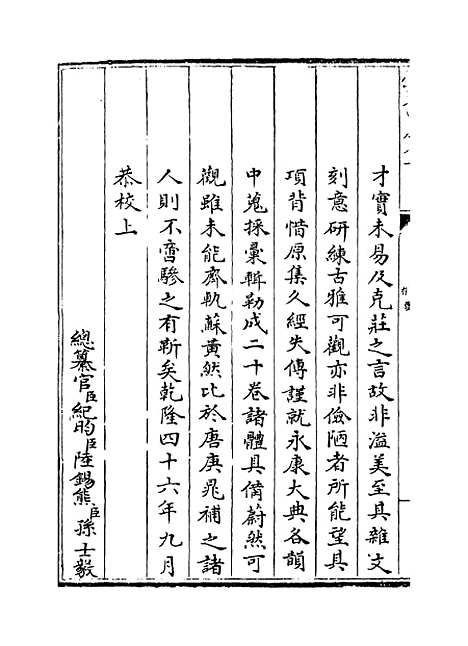 才實未易及克莊之言故非溢美至其雜文
刻意研練古雅可觀亦非儉陋者所能望其
項背惜原集久經失傳謹就永康大典各韻
中蒐採彙輯勒成二十卷諸體具備蔚然可
觀雖未能齊軌蘇黃然比於唐庚晁補之諸
人則不啻驂之有靳矣乾隆四十六年九月
恭校上
總纂官臣紀昀臣陸錫熊臣孫士毅